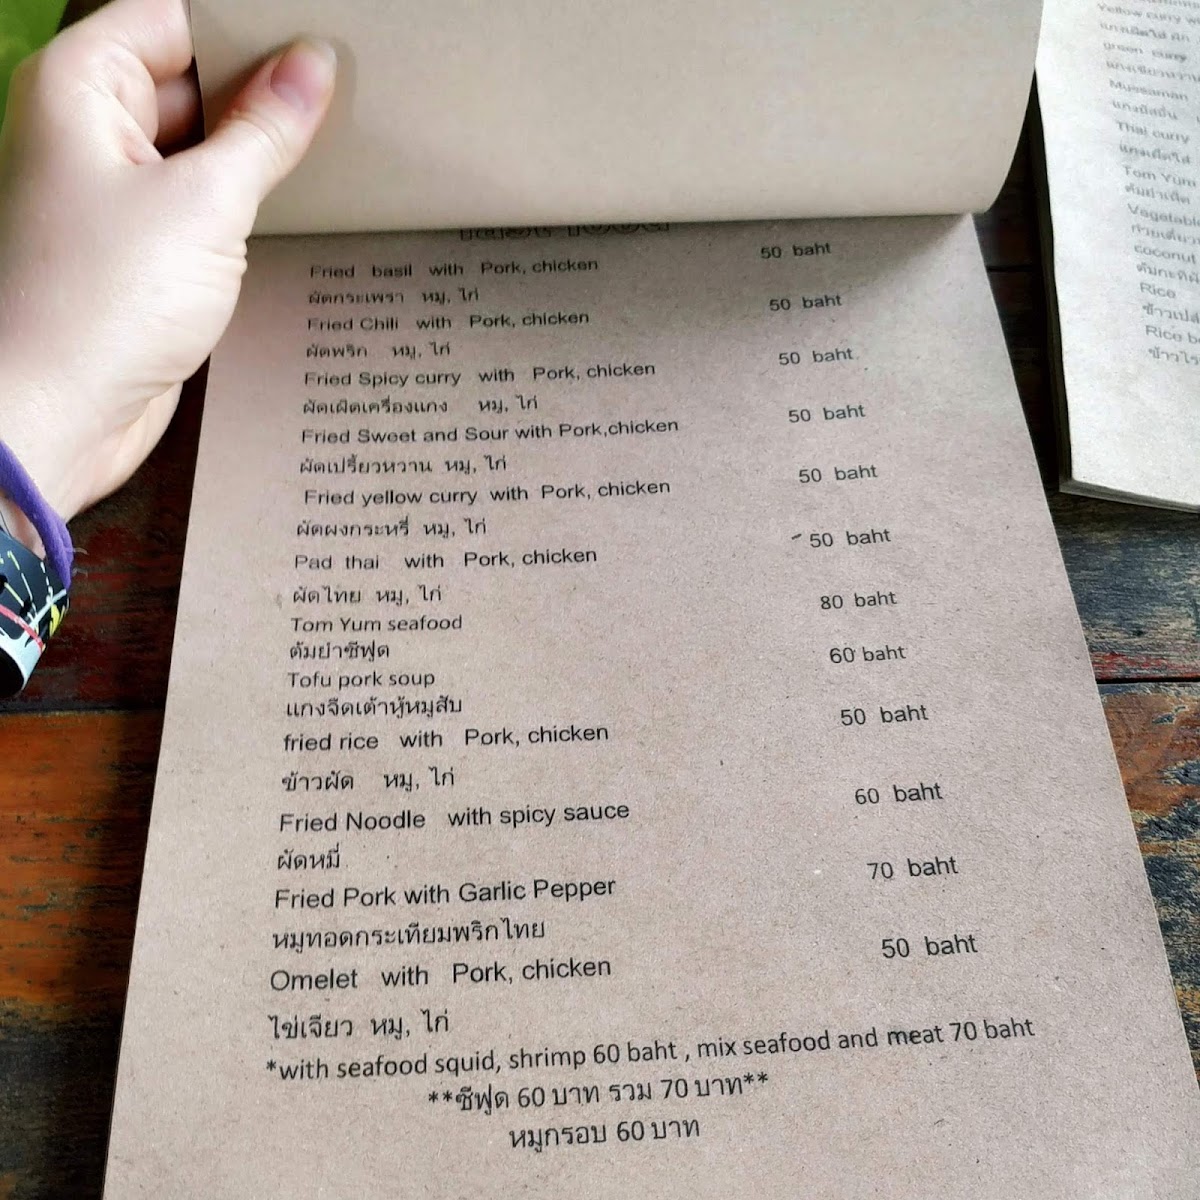 Fried basil with Pork, chicken 50 baht
ผัดกระเพรา หมู, ไก่
Fried Chili with Pork, chicken 50 baht
ผัดพริก หมู, ไก่
Fried Spicy curry with Pork, chicken 50 baht
ผัดเผ็ดเครื่องแกง หมู, ไก่
Fried Sweet and Sour with Pork,chicken 50 baht
ผัดเปรี้ยวหวาน หมู, ไก่
Fried yellow curry with Pork, chicken 50 baht
ผัดผงกระหรี่ หมู, ไก่
Pad thai with Pork, chicken 50 baht
ผัดไทย หมู, ไก่
Tom Yum seafood 80 baht
ต้มยำซีฟูด
Tofu pork soup 60 baht
แกงจืดเต้าหู้หมูสับ
fried rice with Pork, chicken 50 baht
ข้าวผัด หมู, ไก่
Fried Noodle with spicy sauce 60 baht
ผัดหมี่
Fried Pork with Garlic Pepper 70 baht
หมูทอดกระเทียมพริกไทย
Omelet with Pork, chicken 50 baht
ไข่เจียว หมู, ไก่
*with seafood squid, shrimp 60 baht , mix seafood and meat 70 baht
**ซีฟูด 60 บาท รวม 70 บาท**
หมูกรอบ 60 บาท
Yellow curry
green curry
Mussaman
Thai curry
Tom Yum
coconut
Rice
Rice